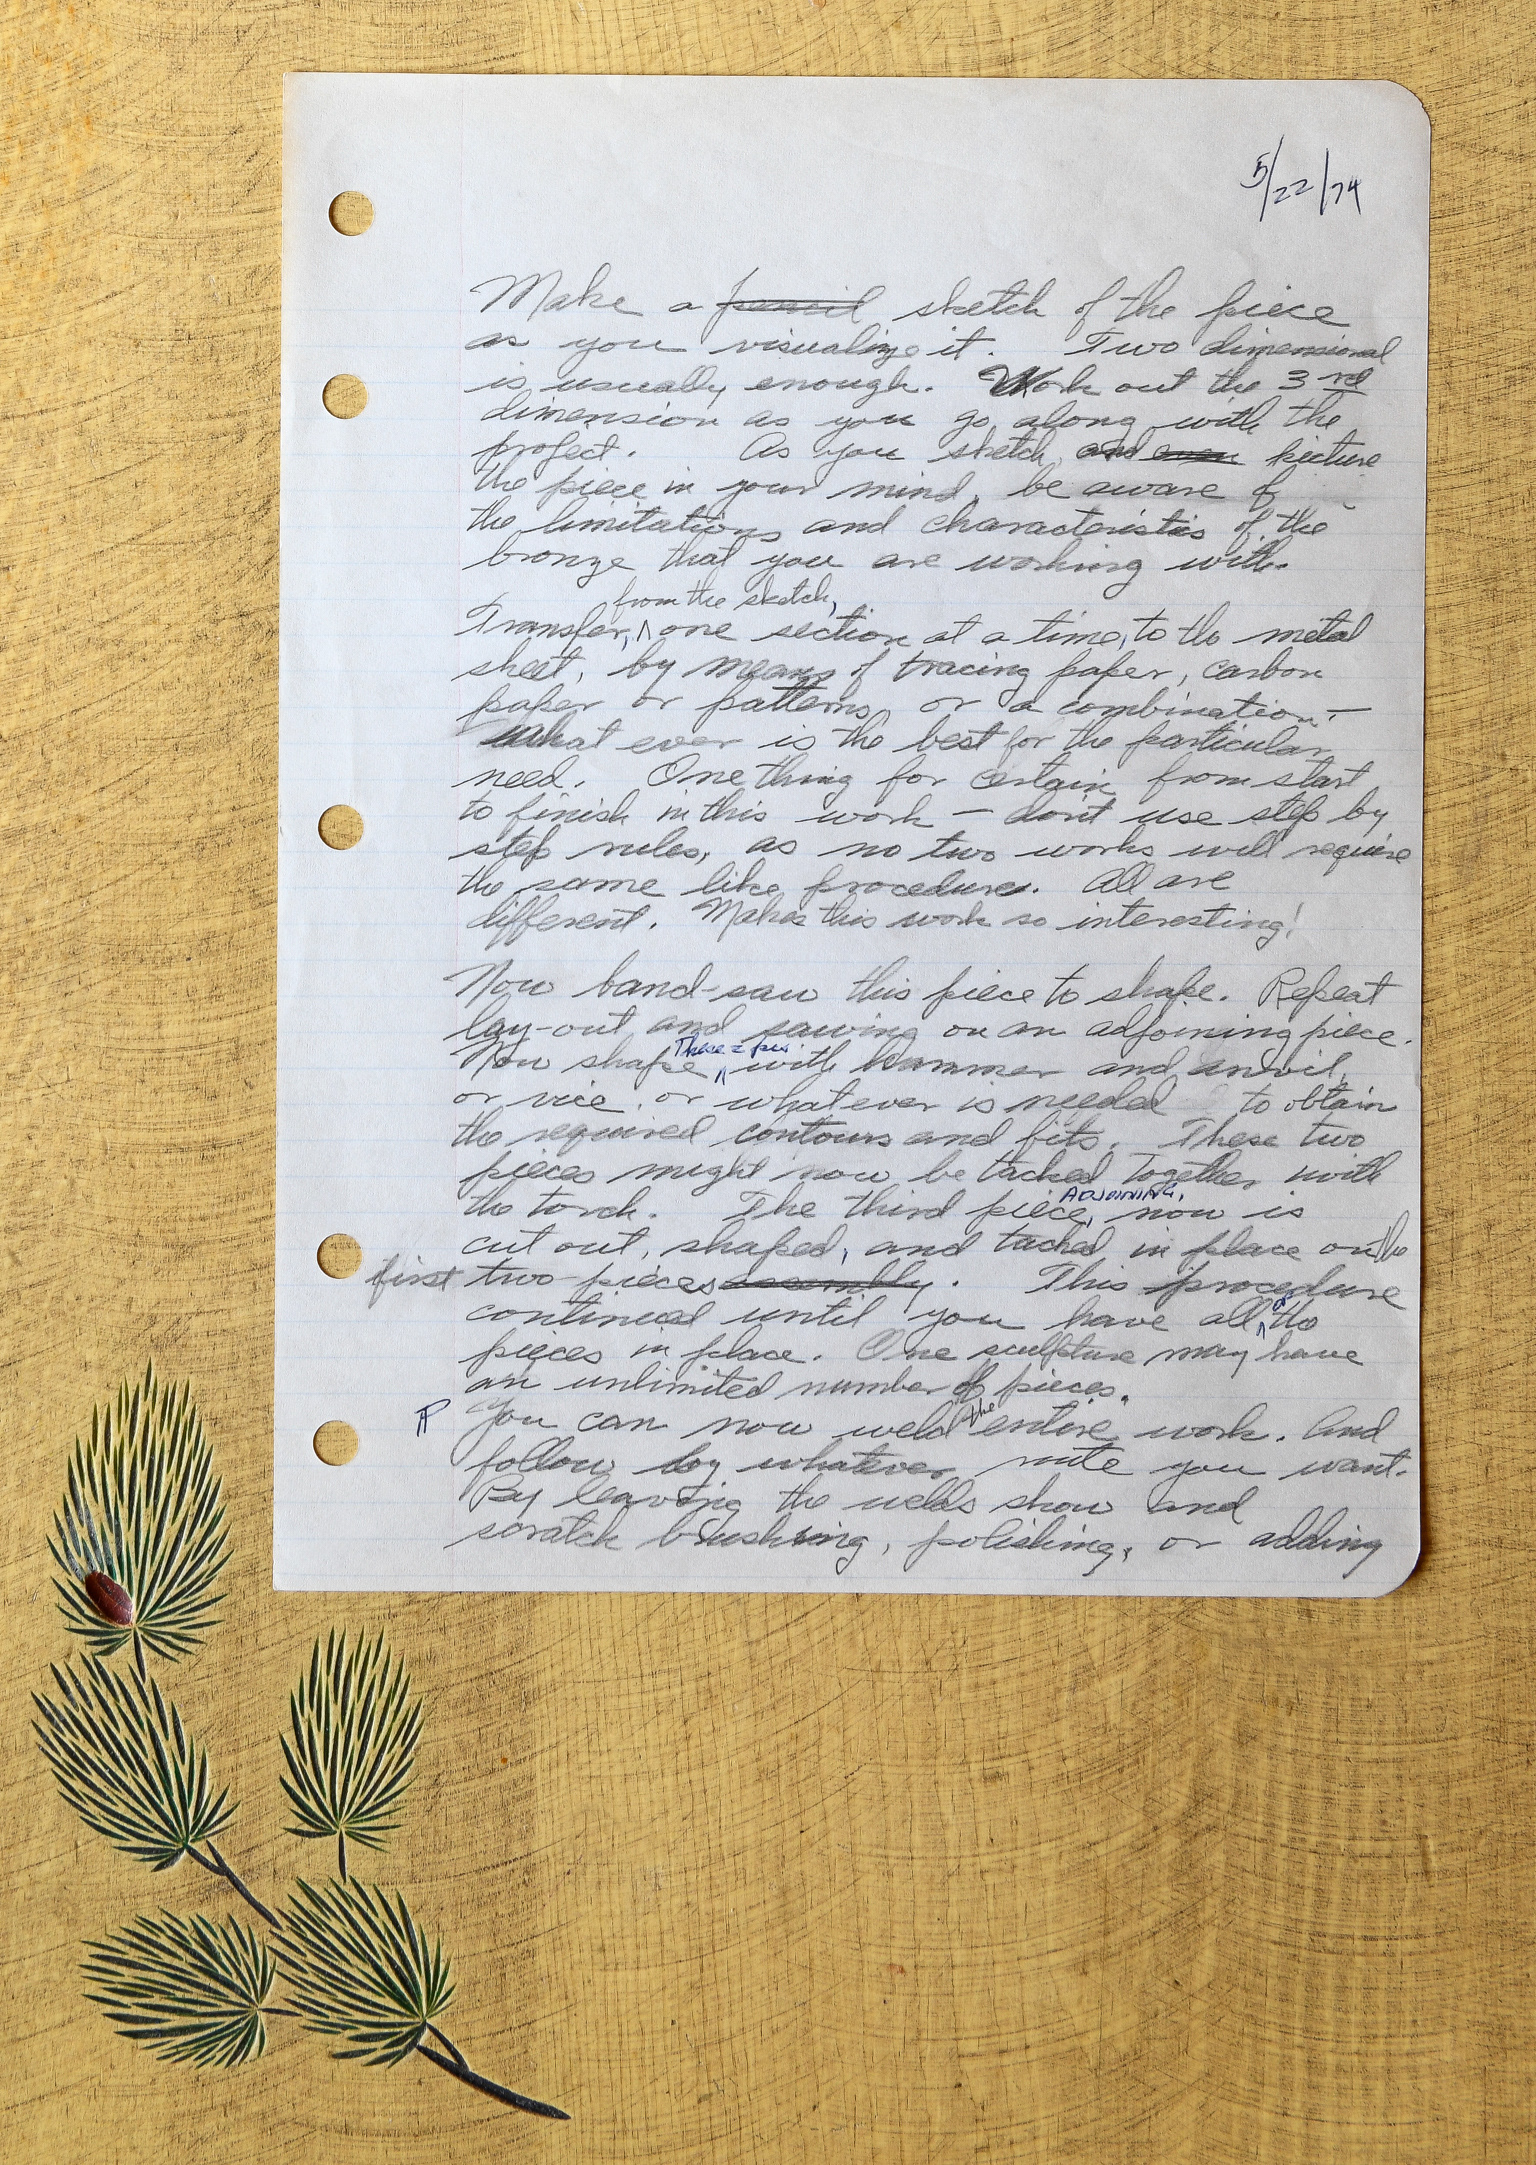 5/22/74
Make a pencil sketch of the piece
as you visualize it. Two dimensional
is usually enough. Work out the 3rd
dimension as you go along with the
project. As you sketch, and even picture
the piece in your mind, be aware of
the limitations and characteristics of the
bronze that you are working with.
from the sketch,
Transfer, ^ one section at a time, to the metal
sheet, by means of tracing paper, carbon
paper or patterns, or a combination. —
what ever is the best for the particular
need. One thing for certain from start
to finish in this work — don't use step by
step rules, as no two works will require
the same like procedures. All are
different. Makes this work so interesting!
Now band-saw this piece to shape. Repeat
lay-out and sawing on an adjoining piece.
These 2 pcs.
Now shape ^ with hammer and anvil,
or vice, or whatever is needed to obtain
the required contours and fits. These two
pieces might now be tacked together with
the torch. The third piece, ADJOINING, now is
cut out, shaped, and tacked in place on the
first two pieces assembly. This procedure
continued until you have all ^ of the
pieces in place. One sculpture may have
an unlimited number of pieces.
¶ You can now weld the entire work. And
follow by whatever route you want.
By leaving the welds show and
scratch brushing, polishing, or adding